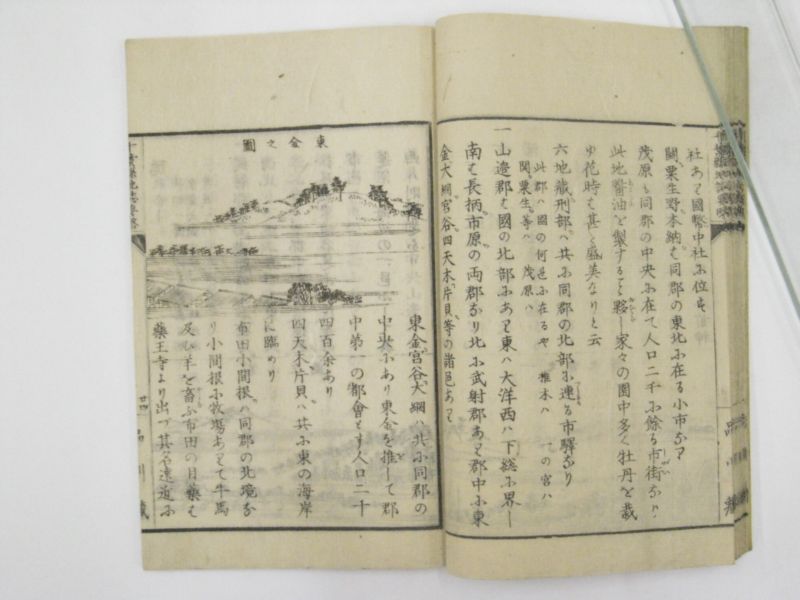 社あり國幣中社に位す
關、粟生野、本納は同郡の東北に在る小市なり
茂原も同郡の中央に在て人口二千に餘る市街なり
此地醬油を製すること夥し家々の園中多く牡丹を栽
ゆ花時は甚だ盛美なりと云
六地藏、刑部は共に同郡の北部に連る市驛なり
此郡は國の何邑に在るや 椎木は 一の宮は
關、粟生等は 茂原は
一山邊郡は國の北部にあり東は大洋西は下總に界し
南は長柄市原の両郡なり北に武射郡あり郡中に東
金、大網、宮谷、四天木、片貝等の諸邑あり
東金之圖
東金、宮谷、大網は共に同郡の
中央にあり東金を推して郡
中第一の都會とす人口二千
四百余あり
四天木、片貝は共に東の海岸
に臨めり
布田、小間根は同郡の北境な
り小間根に牧塲ありて牛馬
及ひ羊を畜ふ布田の目藥は
藥王寺より出づ其名遠近に